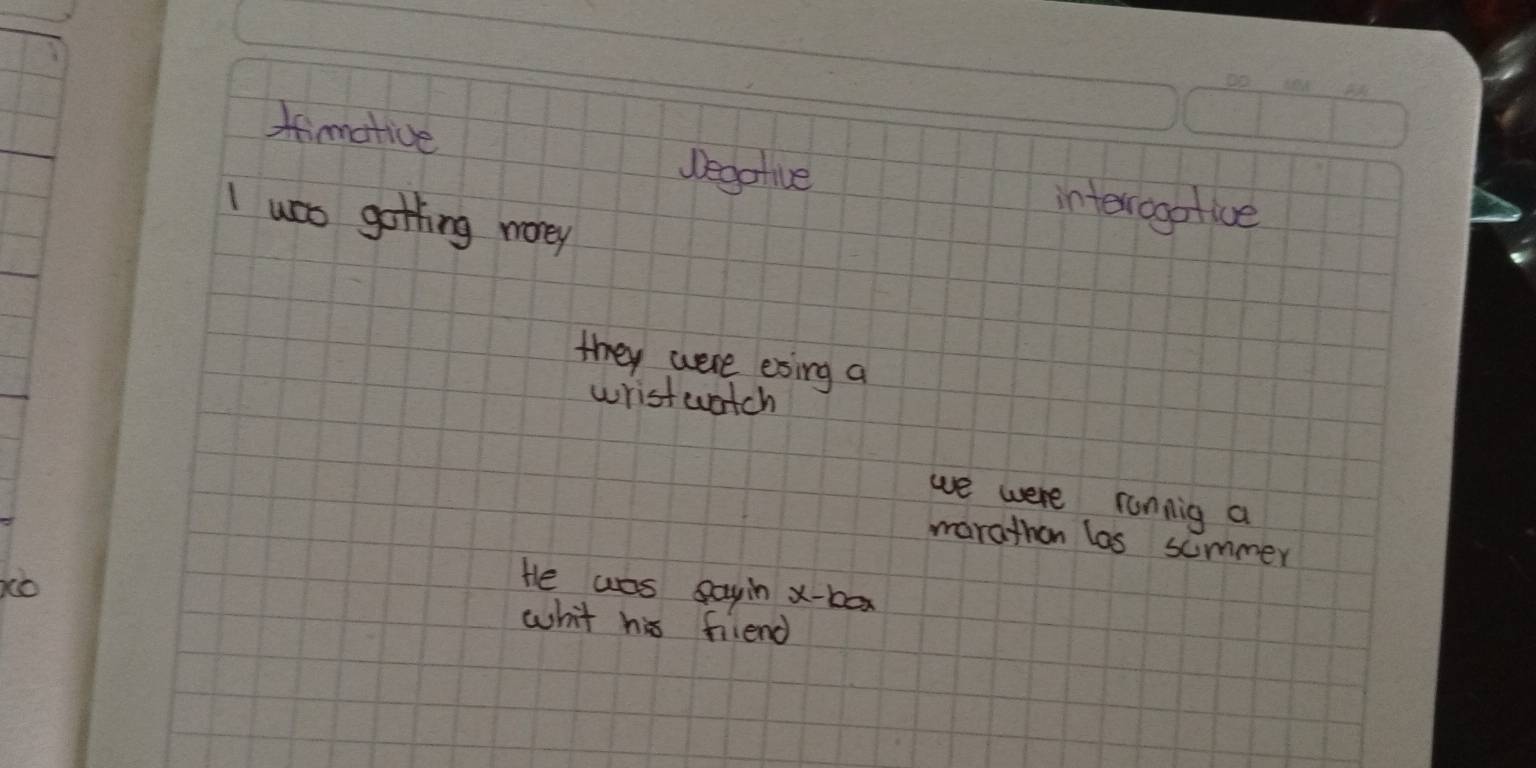 Afimative
Negative
interrogative
I was gotting money
they were esing a
wristwatch
we were runnig a
marathon las summer
He was payin x-box
whit his friend
xo
DD MM AA